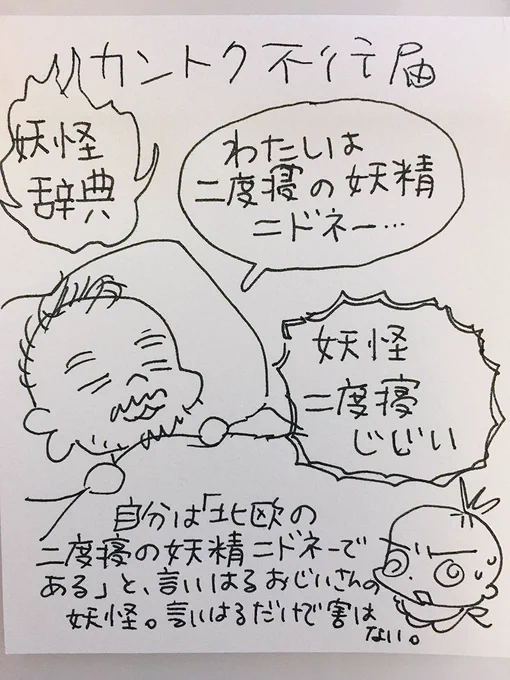 カントク不行届
妖怪
辞典
わたいは
二度寝の妖精
ニドネー…
妖怪
二度寝
じじい
自分は「北欧の
二度寝の妖精ニドネーで
ある」と、言いはるおじいさんの
妖怪。言いはるだけで害は
ない。